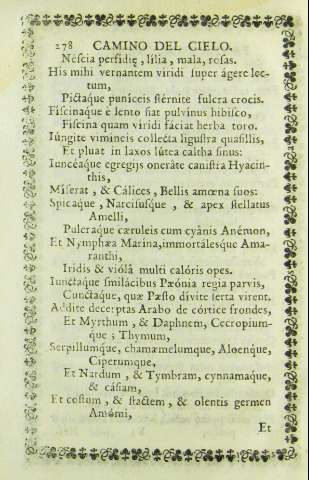 278 CAMINO DEL CIELO.
Néscia perfidię, lilia, mala, rosas.
His mihi vernantem viridi super ágere lec-
tum,
Pictaque puniceis stérnite fulcra crocis.
Fiscinaque è lento fiat pulvinus hibisco,
Fiscina quam viridi fáciat herba toro.
Iúngite vimineis collecta ligustra quasillis,
Et pluat in laxos lútea caltha sinus:
Iuncéaque egregijs oneráte canistra Hyacin-
this,
Míserat, & Cálices, Bellis amœna suos:
Spicaque, Narcisusque, & apex stellatus
Amelli,
Pulcraque cæruleis cum cyânis Anémon,
Et Nymphæa Marina, immortálesque Ama-
ranthi,
Iridis & viólâ multi calóris opes.
Iunctaque smilácibus Pæónia regia parvis,
Cunctaque, quæ Pæsto dívite serta virent.
Addite deceptas Arabo de córtice frondes,
Et Myrthum, & Daphnem, Cecropium-
que; Thymum,
Serpillumque, chamæmelumque, Aloenque,
Ciperumque,
Et Nardum, & Tymbram, cynnamaque,
& cásiam,
Et costum, & stactem, & olentis germen
Amómi,
Et